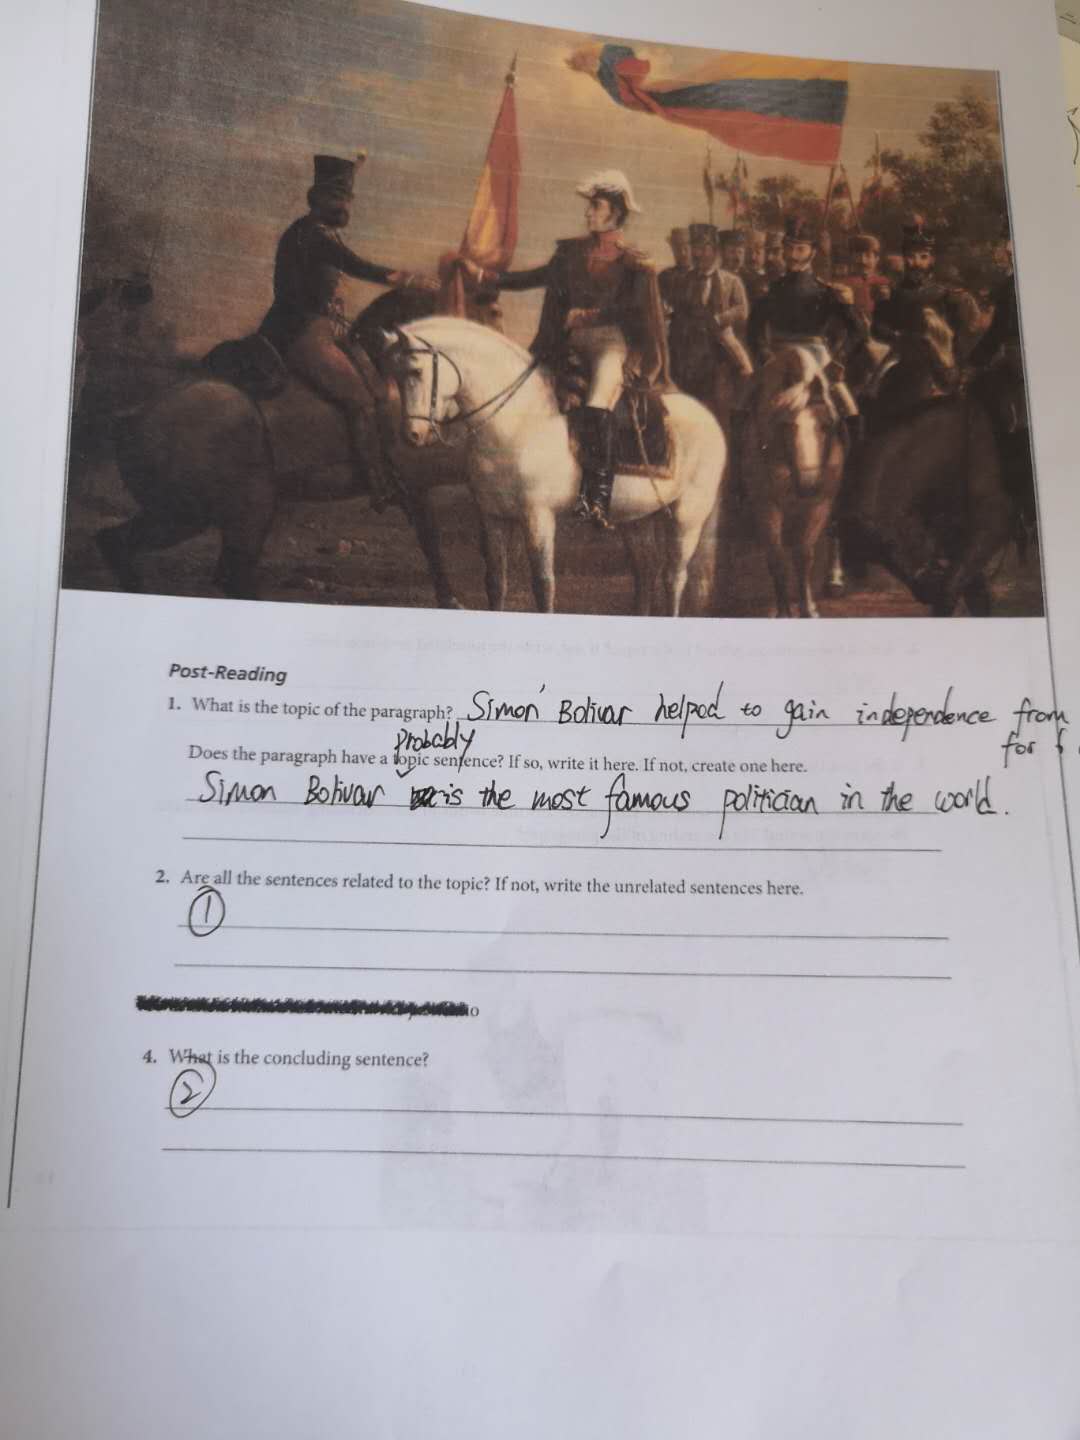 Post-Reading
1. What is the topic of the paragraph? Simón Bolivar helped to gain independence from
for 6
probably
Does the paragraph have a topic sentence? If so, write it here. If not, create one here.
Simon Bolivar is the most famous politician in the world.
2. Are all the sentences related to the topic? If not, write the unrelated sentences here.
①
4. What is the concluding sentence?
②